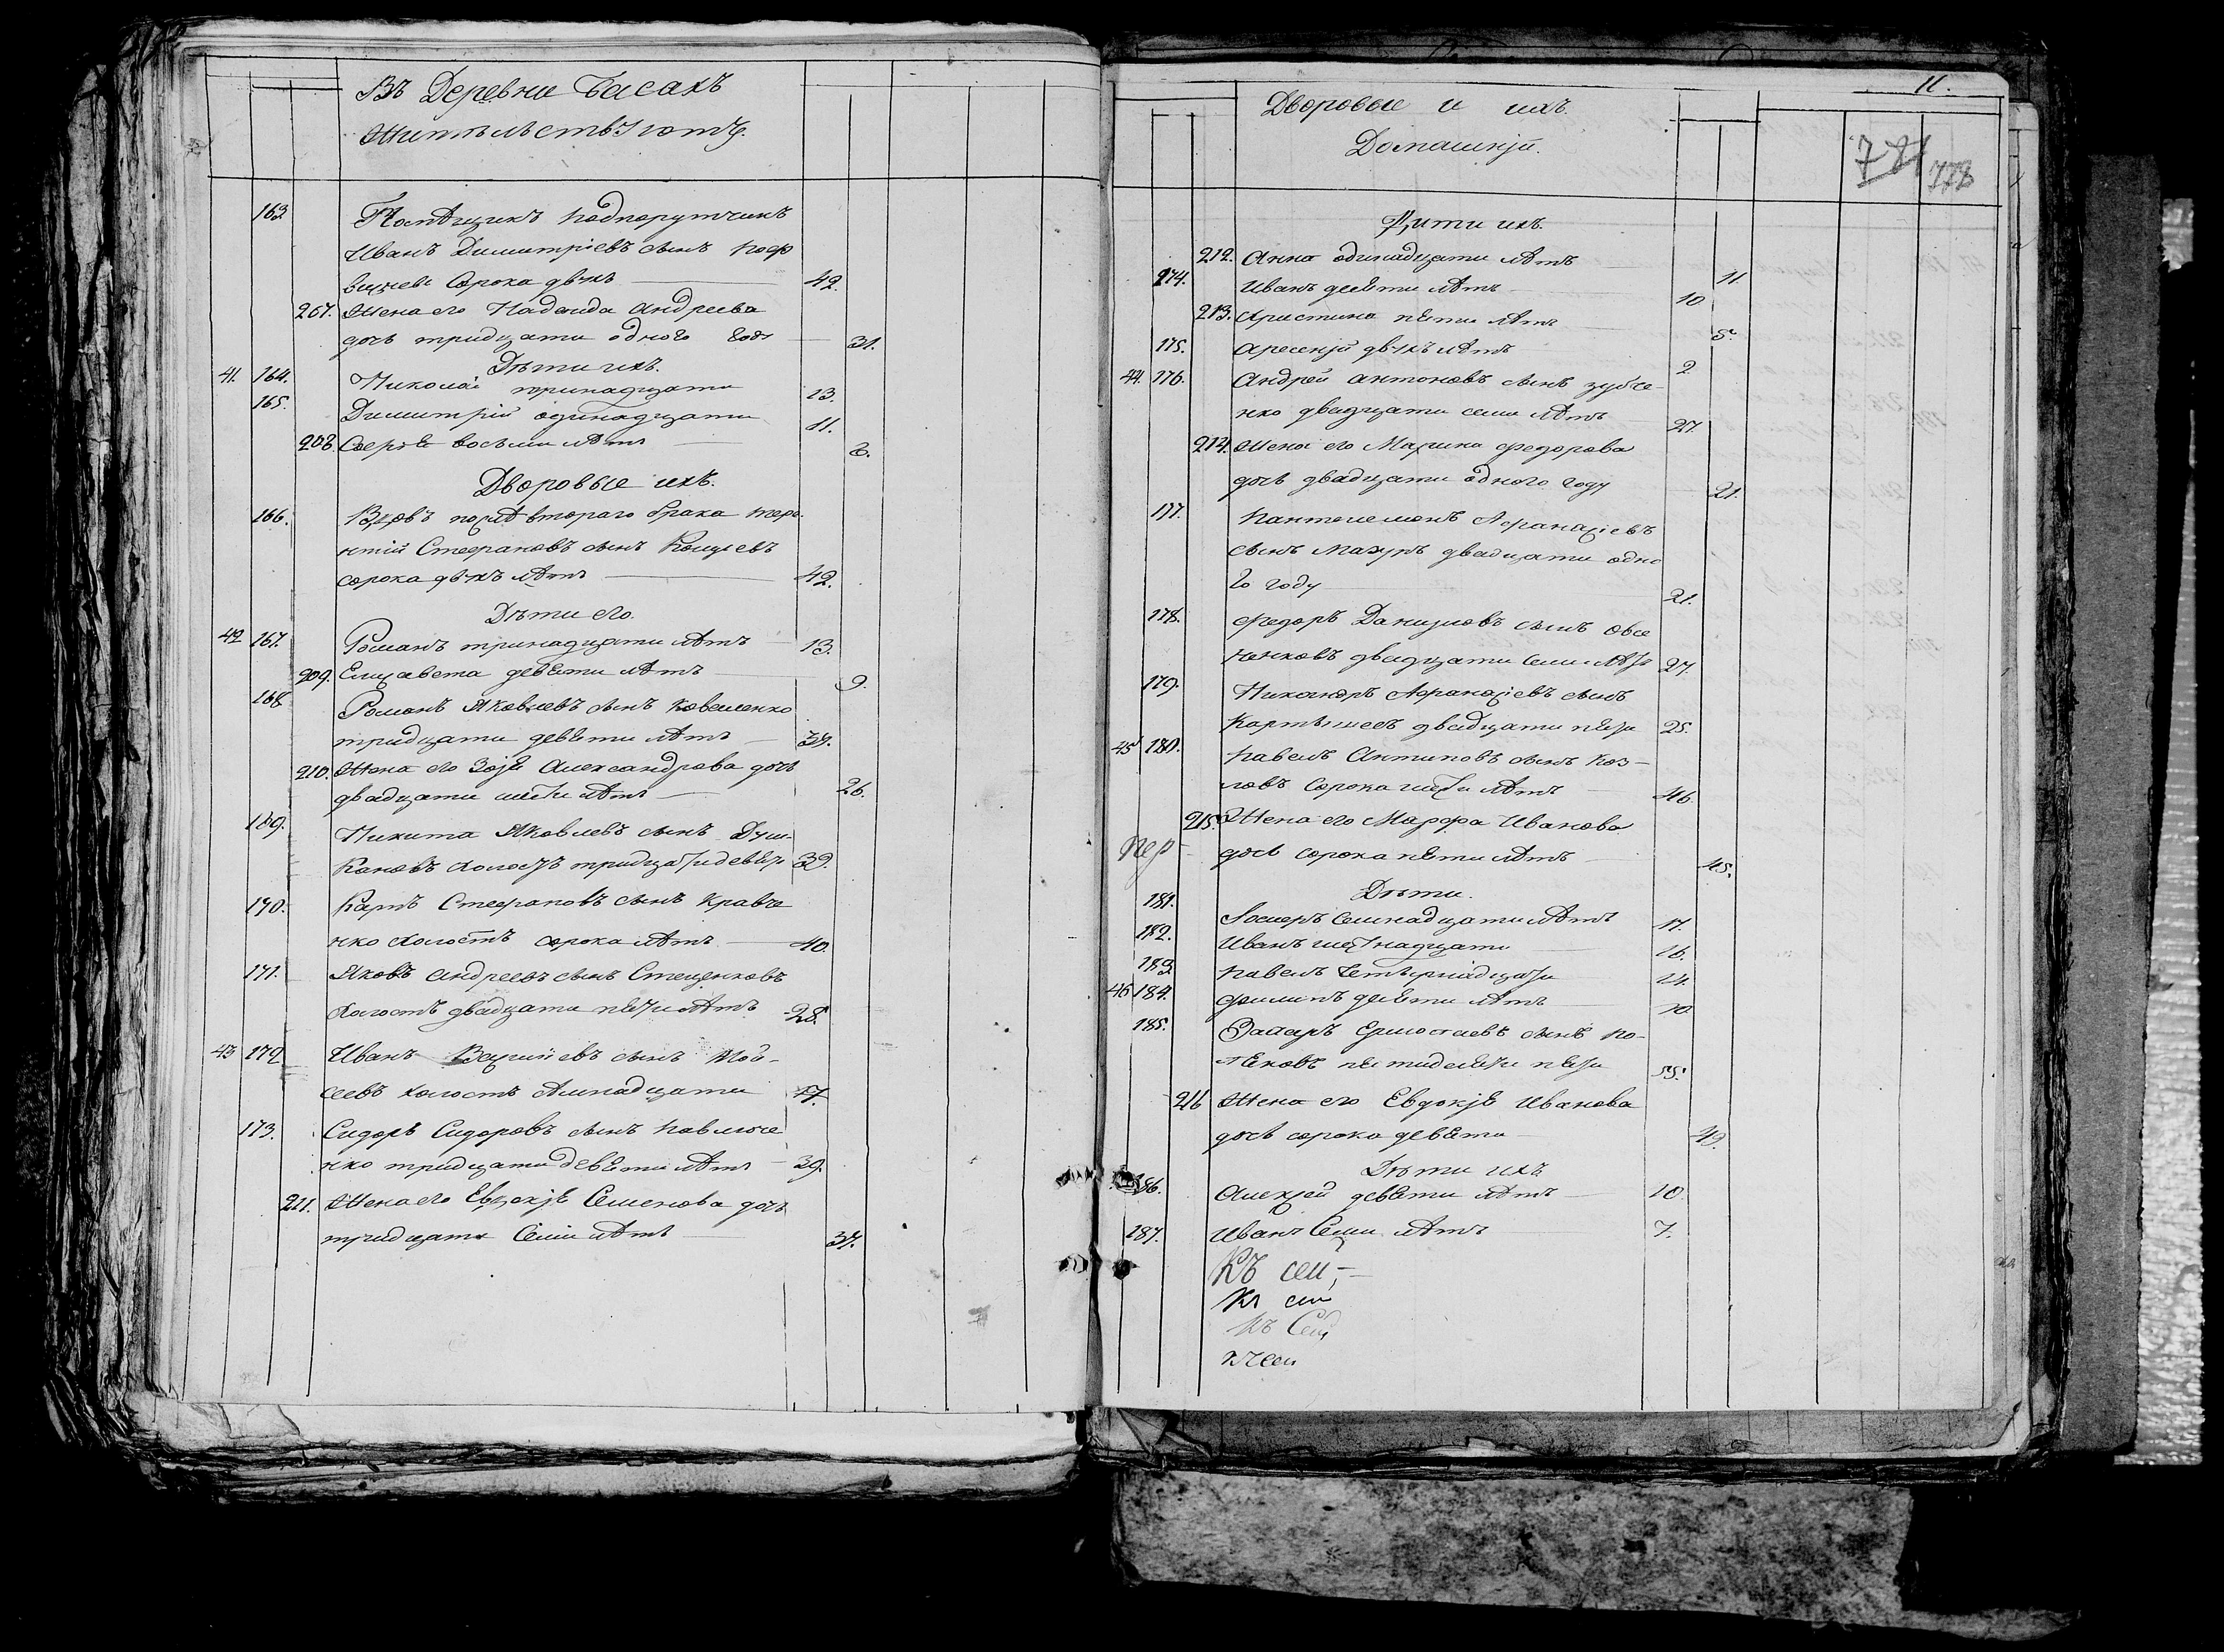 Въ Деревни Басахъ
Жительствуютъ
163. Помѣщикъ подпорутчикъ
Иванъ Димитріевъ сынъ
Сорока двухъ 42.
207. Жена его Надежда Андреева
дочь тридцати одного года 31.
Дѣти ихъ.
41. 164. Николай тринадцати 13.
165. Димитрій одинадцати 11.
208. восьми лѣтъ 8.
Дворовые ихъ.
166. Вдовъ послѣ втораго брака Тере-
нтій Стефановъ сынъ
сорока двухъ лѣтъ 42.
Дѣти его.
42 167. Романъ тринадцати лѣтъ 13.
209. Елисавета девяти лѣтъ 9.
168. Романъ Яковлевъ сынъ Коваленко
тридцати девяти лѣтъ 39.
210. Жена его Зоія Александрова дочь
двадцати шести лѣтъ 26.
169. Никита Яковлевъ сынъ Душ-
кановъ холостъ тридцати девяти 39.
170. Карпъ Стефановъ сынъ Кравче
нко холостъ сорока лѣтъ 40.
171. Яковъ Андреевъ сынъ Стеценковъ
холостъ двадцати пяти лѣтъ 25.
43 172 Иванъ сынъ Мой-
сеевъ холостъ семнадцати 17.
173. Сидоръ Сидоровъ сынъ Павлюче
нко тридцати девяти лѣтъ 39.
211. Жена его Евдокія Семенова дочь
тридцати семи лѣтъ 37.
11.
Дворовые и ихъ
Домашніи.
771 778
Дити ихъ.
212. Анна одинадцати лѣтъ 11.
174. Иванъ десяти лѣтъ 10
213. Христина пяти лѣтъ 5.
175. Арсеній двухъ лѣтъ 2
44. 176. Андрей Антоновъ сынъ Зубче-
нко двадцати семи лѣтъ 27.
214. Жена его Марина Федорова
дочь двадцати одного году 21.
177. Пантелемонъ Афанасіевъ
сынъ Мазуръ двадцати одно
го году 21.
178. Федоръ Даниловъ сынъ Овсе
нковъ двадцати семи лѣтъ 27.
179. Никаноръ Афанасіевъ сынъ
Картышевъ двадцати пяти 25.
45 180. Павелъ Антиповъ сынъ Коз-
ловъ сорока шести лѣтъ 46.
215. Жена его Марфа Иванова
пер дочь сорока пяти лѣтъ 45.
Дѣти.
181. семнадцати лѣтъ 17.
182. Иванъ шестнадцати 16.
183. Павелъ четырнадцати 14.
46 184. Филипъ десяти лѣтъ 10
185. Захаръ Ермолаевъ сынъ По-
ляковъ пятидесяти пяти 55.
216 Жена его Евдокія Иванова
дочь сорока девяти 49.
Дѣти ихъ
186. Алексей девяти лѣтъ 10.
187. Иванъ Семи лѣтъ 7.
Къ сей
Къ сей
Къ Сей
Къ сей